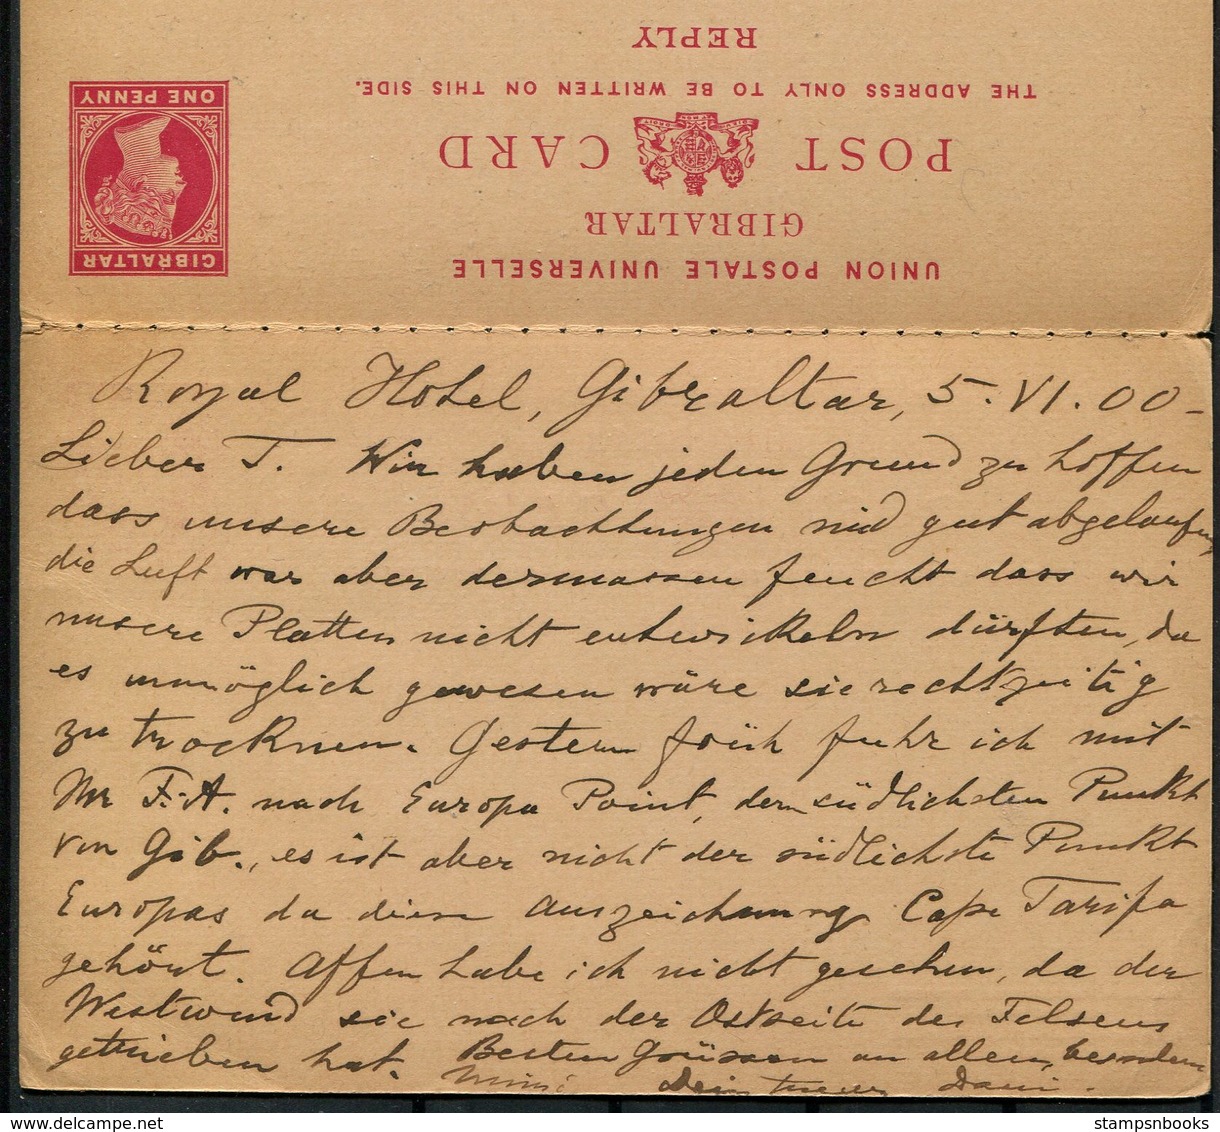 REPLY
THE ADDRESS ONLY TO BE WRITTEN ON THIS SIDE.
POST CARD
GIBRALTAR
UNION POSTALE UNIVERSELLE
GIBRALTAR
ONE PENNY
Royal Hotel, Gibraltar, 5. VI. 00 -
Lieber T. Wir haben jeden Grund zu hoffen
dass unsere Beobachtungen sind gut abgelaufen,
die Luft war aber dermassen feucht dass wir
unsere Platten nicht entwickeln dürften, da
es unmöglich gewesen wäre sie rechtzeitig
zu trocknen. Gestern früh fuhr ich mit
Mr F.A. nach Europa Point, dem südlichsten Punkt
von Gib., es ist aber nicht der südlichste Punkt
Europas da diese Auszeichnung Cape Tarifa
gehört. Affen habe ich nicht gesehen, da der
Westwind sie nach der Ostseite des Felsens
getrieben hat. Besten Grüssen an allen, besonders
Mimi Dein treuer
stampsnbooks